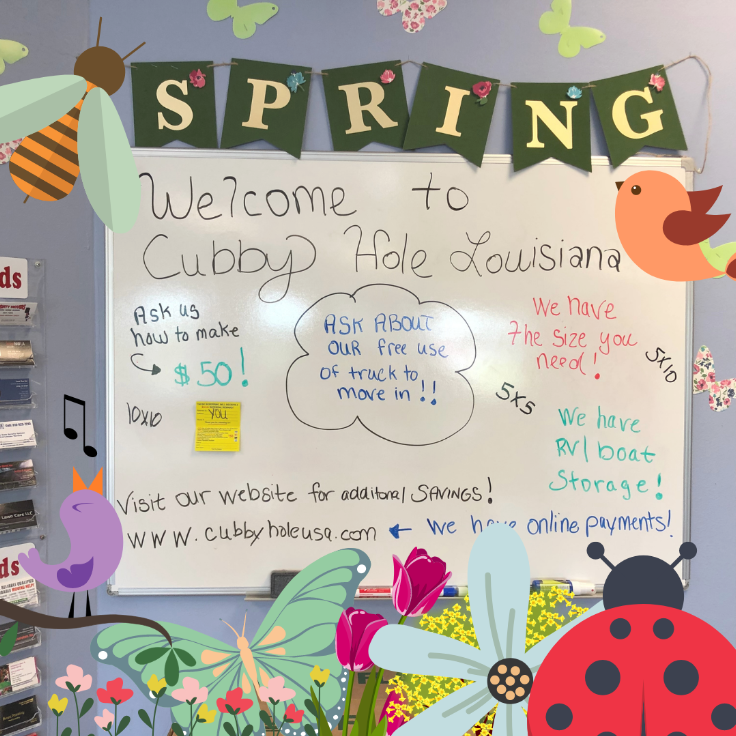 SPRING
Welcome to
Cubby Hole Louisiana
Ask us
how to make
$50!
10x10
YOU
ASK ABOUT
OUR free use
of truck to
move in!!
We have
the size you
need!
5x10
5x5
We have
RV/boat
Storage!
Visit our website for additonal SAVINGS!
www.cubbyholeusa.com ← We have online payments!
ds
ds